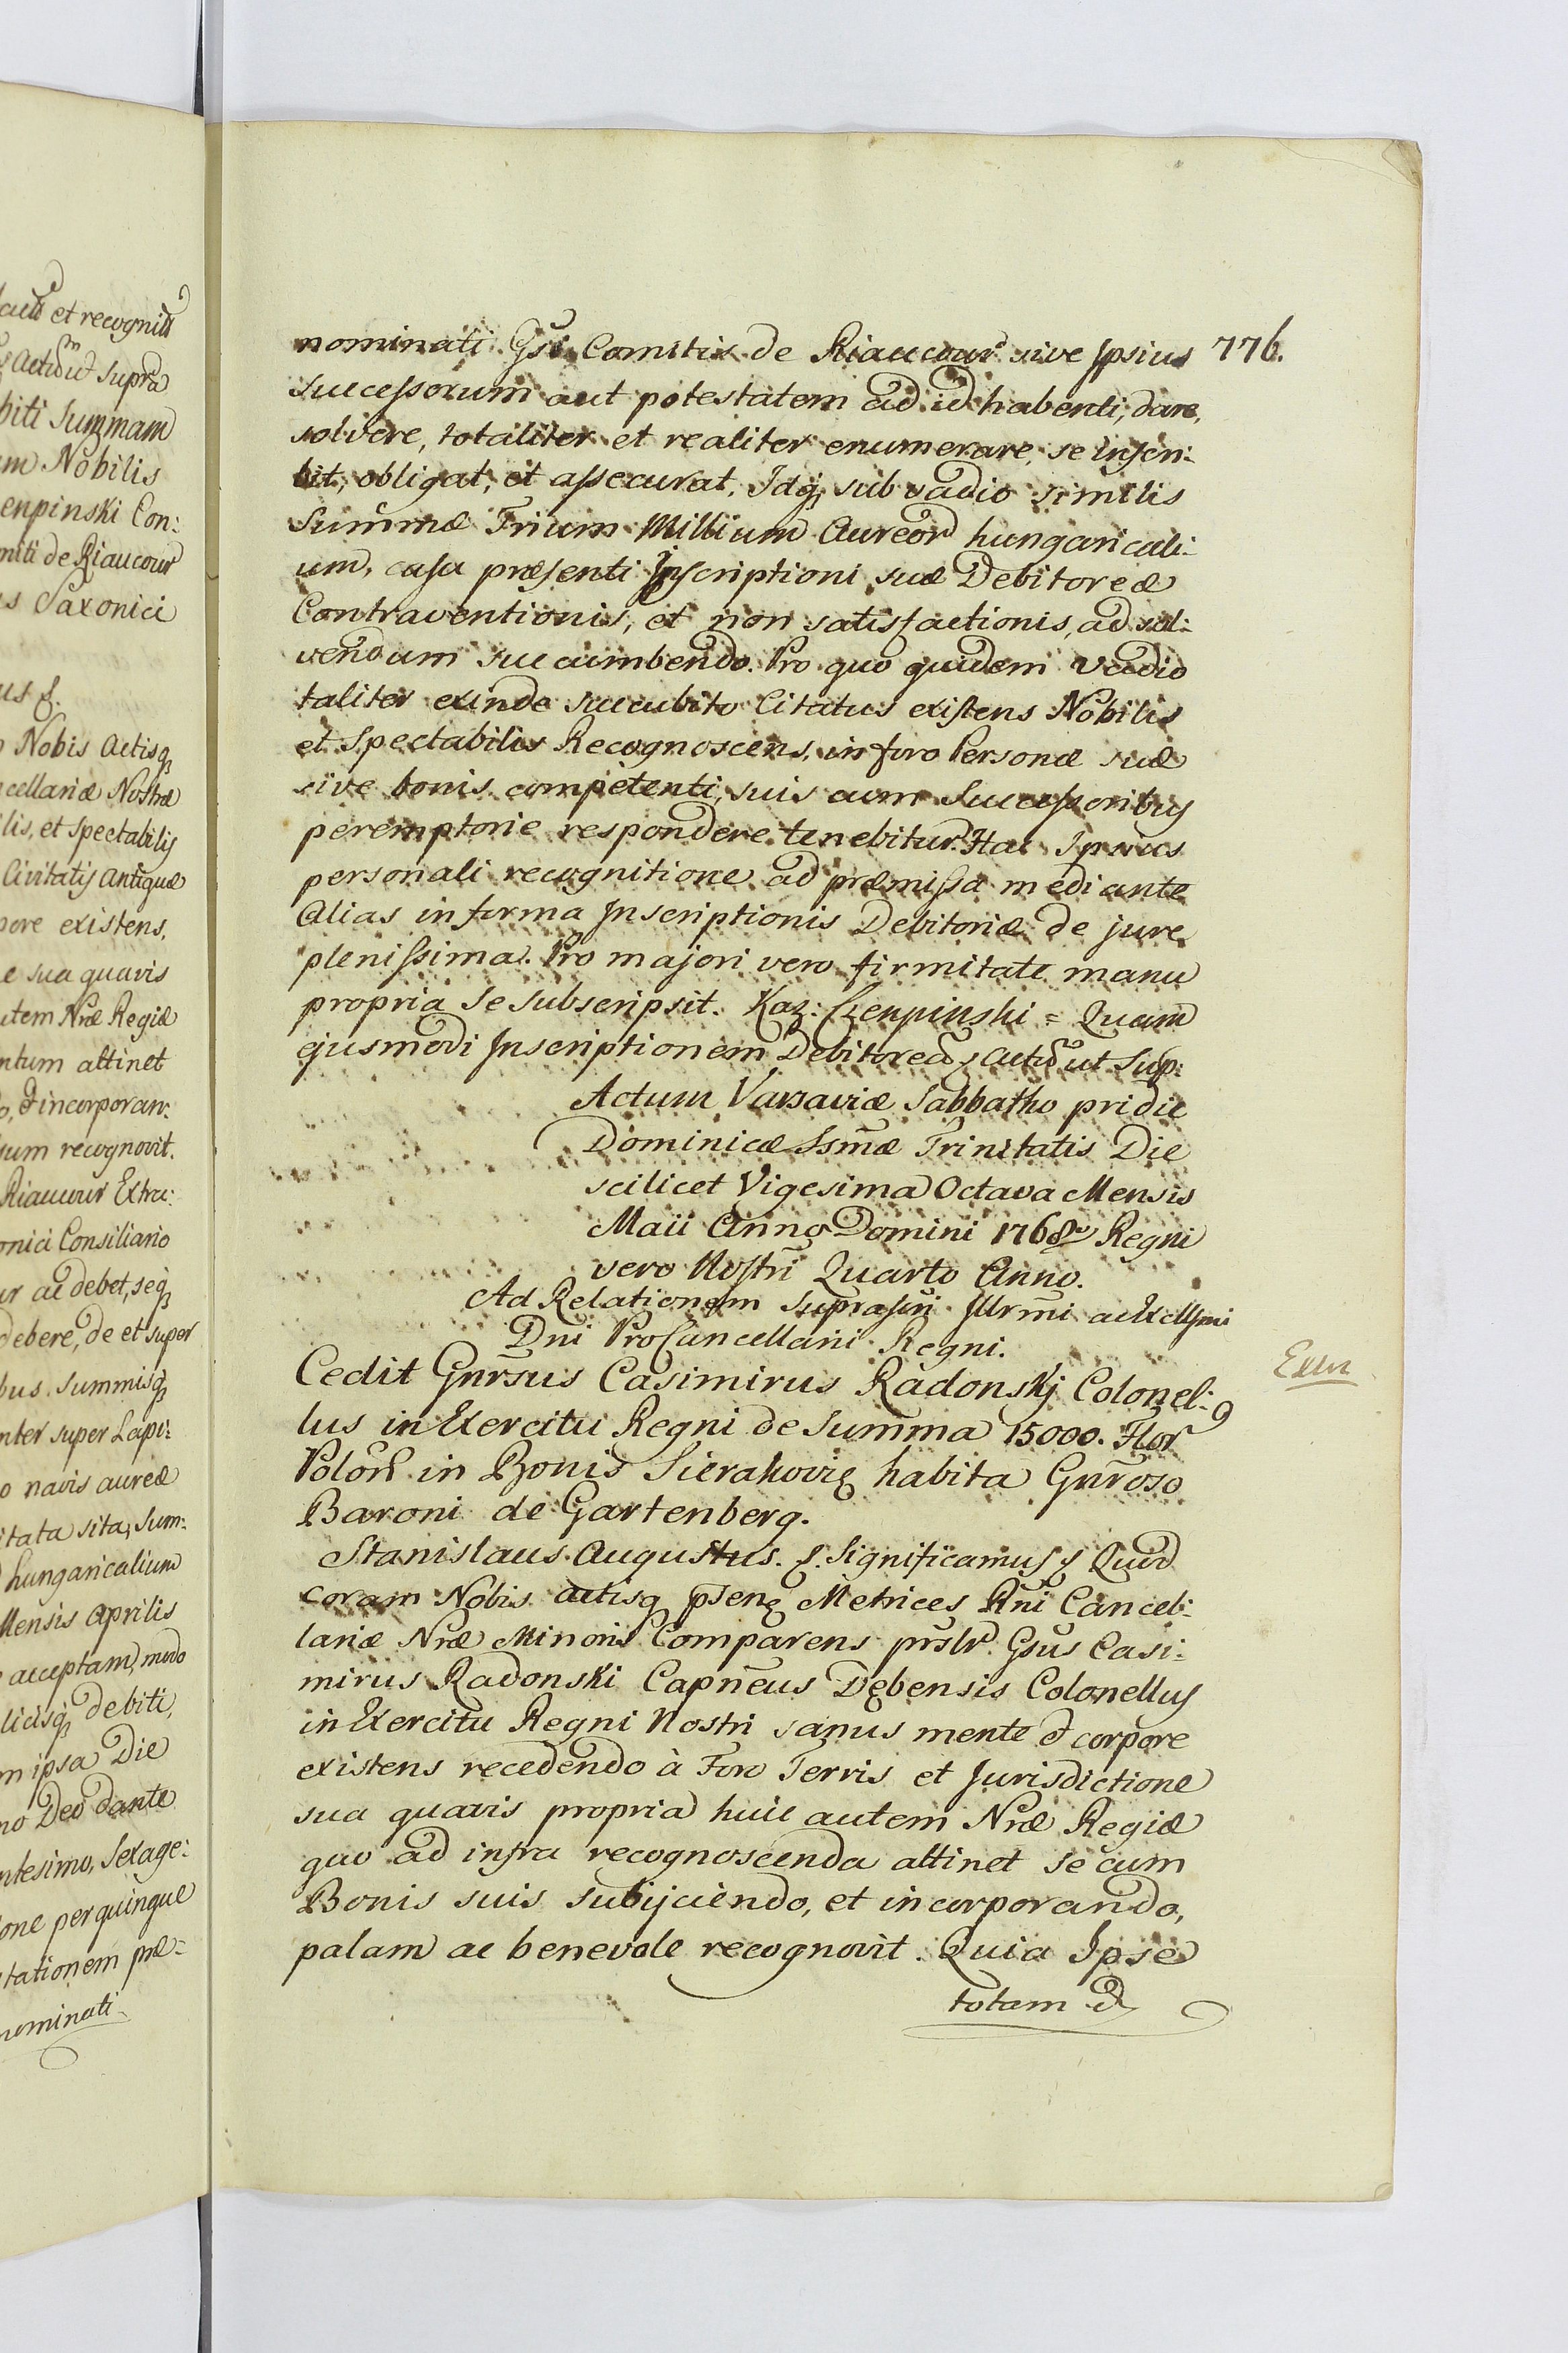 acta et recognita
Actis ut supra
biti Summam
um Nobilis
enpinski Con:
miti de Riaucour
is Saxonici
us &.
o Nobis Actisq3
cellariæ Nostræ
lis, et spectabilis
Civitatis antiquæ
pore existens,
e sua quavis
utem Nræ Regiæ
ntum attinet
o, & incorporan:
sum recognovit.
Riaucour Extra:
onici Consiliario
ur ac debet, seq3
debere, de et super
bus. summisq3
nter super Lapi:
o navis aureæ
itata sita, Sum:
hungaricalium
Mensis Aprilis
acceptam, modo
licisq3 debiti,
m ipsa Die
no Deo dante
ntesimo, Sexage:
one per quinque
tationem præ:
nominati
776.
nominati Gsi Comitis de Riaucour sive Ipsius
Successorum aut potestatem ad id habenti, dare,
solvere, totaliter et realiter enumerare, se inscri:
bit, obligat, et assecurat, Idq3 sub vadio similis
Summæ Trium Millium Aureor hungaricali:
um, casu præsenti Inscriptioni suæ Debitoreæ
Contraventionis, et non satisfactionis, ad sol:
vendum succumbendo. Pro quo quidem Vadio
taliter exinde succubito Citatus existens Nobilis
et Spectabilis Recognoscens, in foro Personæ suæ
sive bonis competenti, suis cum Successoribus
peremptorie respondere tenebitur. Hac Ipsius
personali recognitione ad præmissa mediante
Alias in forma Inscriptionis Debitoriæ de jure
plenissima. Pro majori vero firmitate manu
propria Se Subscripsit. Kaz: Czenpinski = Quam
ejusmodi Inscriptionem Debitoream & Actis ut Sup:
Actum Varsaviæ Sabbatho pridie
Dominicæ Ssmæ Trinitatis Die
scilicet Vigesima Octava Mensis
Maii Anno Domini 1768vo Regni
vero Nostri Quarto Anno.
Ad Relationem suprascri Illrmi ac Excllsmi
Dni ProCancellarii Regni.
Exin
Cedit Gnrsus Casimirus Radonskj Colonel: 9
lus in Exercitu Regni de Summa 15000. Flor
Polon in Bonis Sierakovię habita Gnroso
Baroni de Gartenberg.
Stanislaus Augustus. &. Significamus & Quod
coram Nobis actisq psenę Metrices Rni Cancel:
lariæ Nræ Minoris Comparens prslr Gsus Casi:
mirus Radonski Capneus Dębensis Colonellus
in Exercitu Regni Nostri sanus mente & corpore
existens recedendo à Foro Terris et Jurisdictione
sua quavis propria huic autem Nræ Regiæ
quo ad infra recognoscenda attinet se cum
Bonis suis subijciendo, et incorporando,
palam ac benevole recognovit. Quia Ipse
totam &